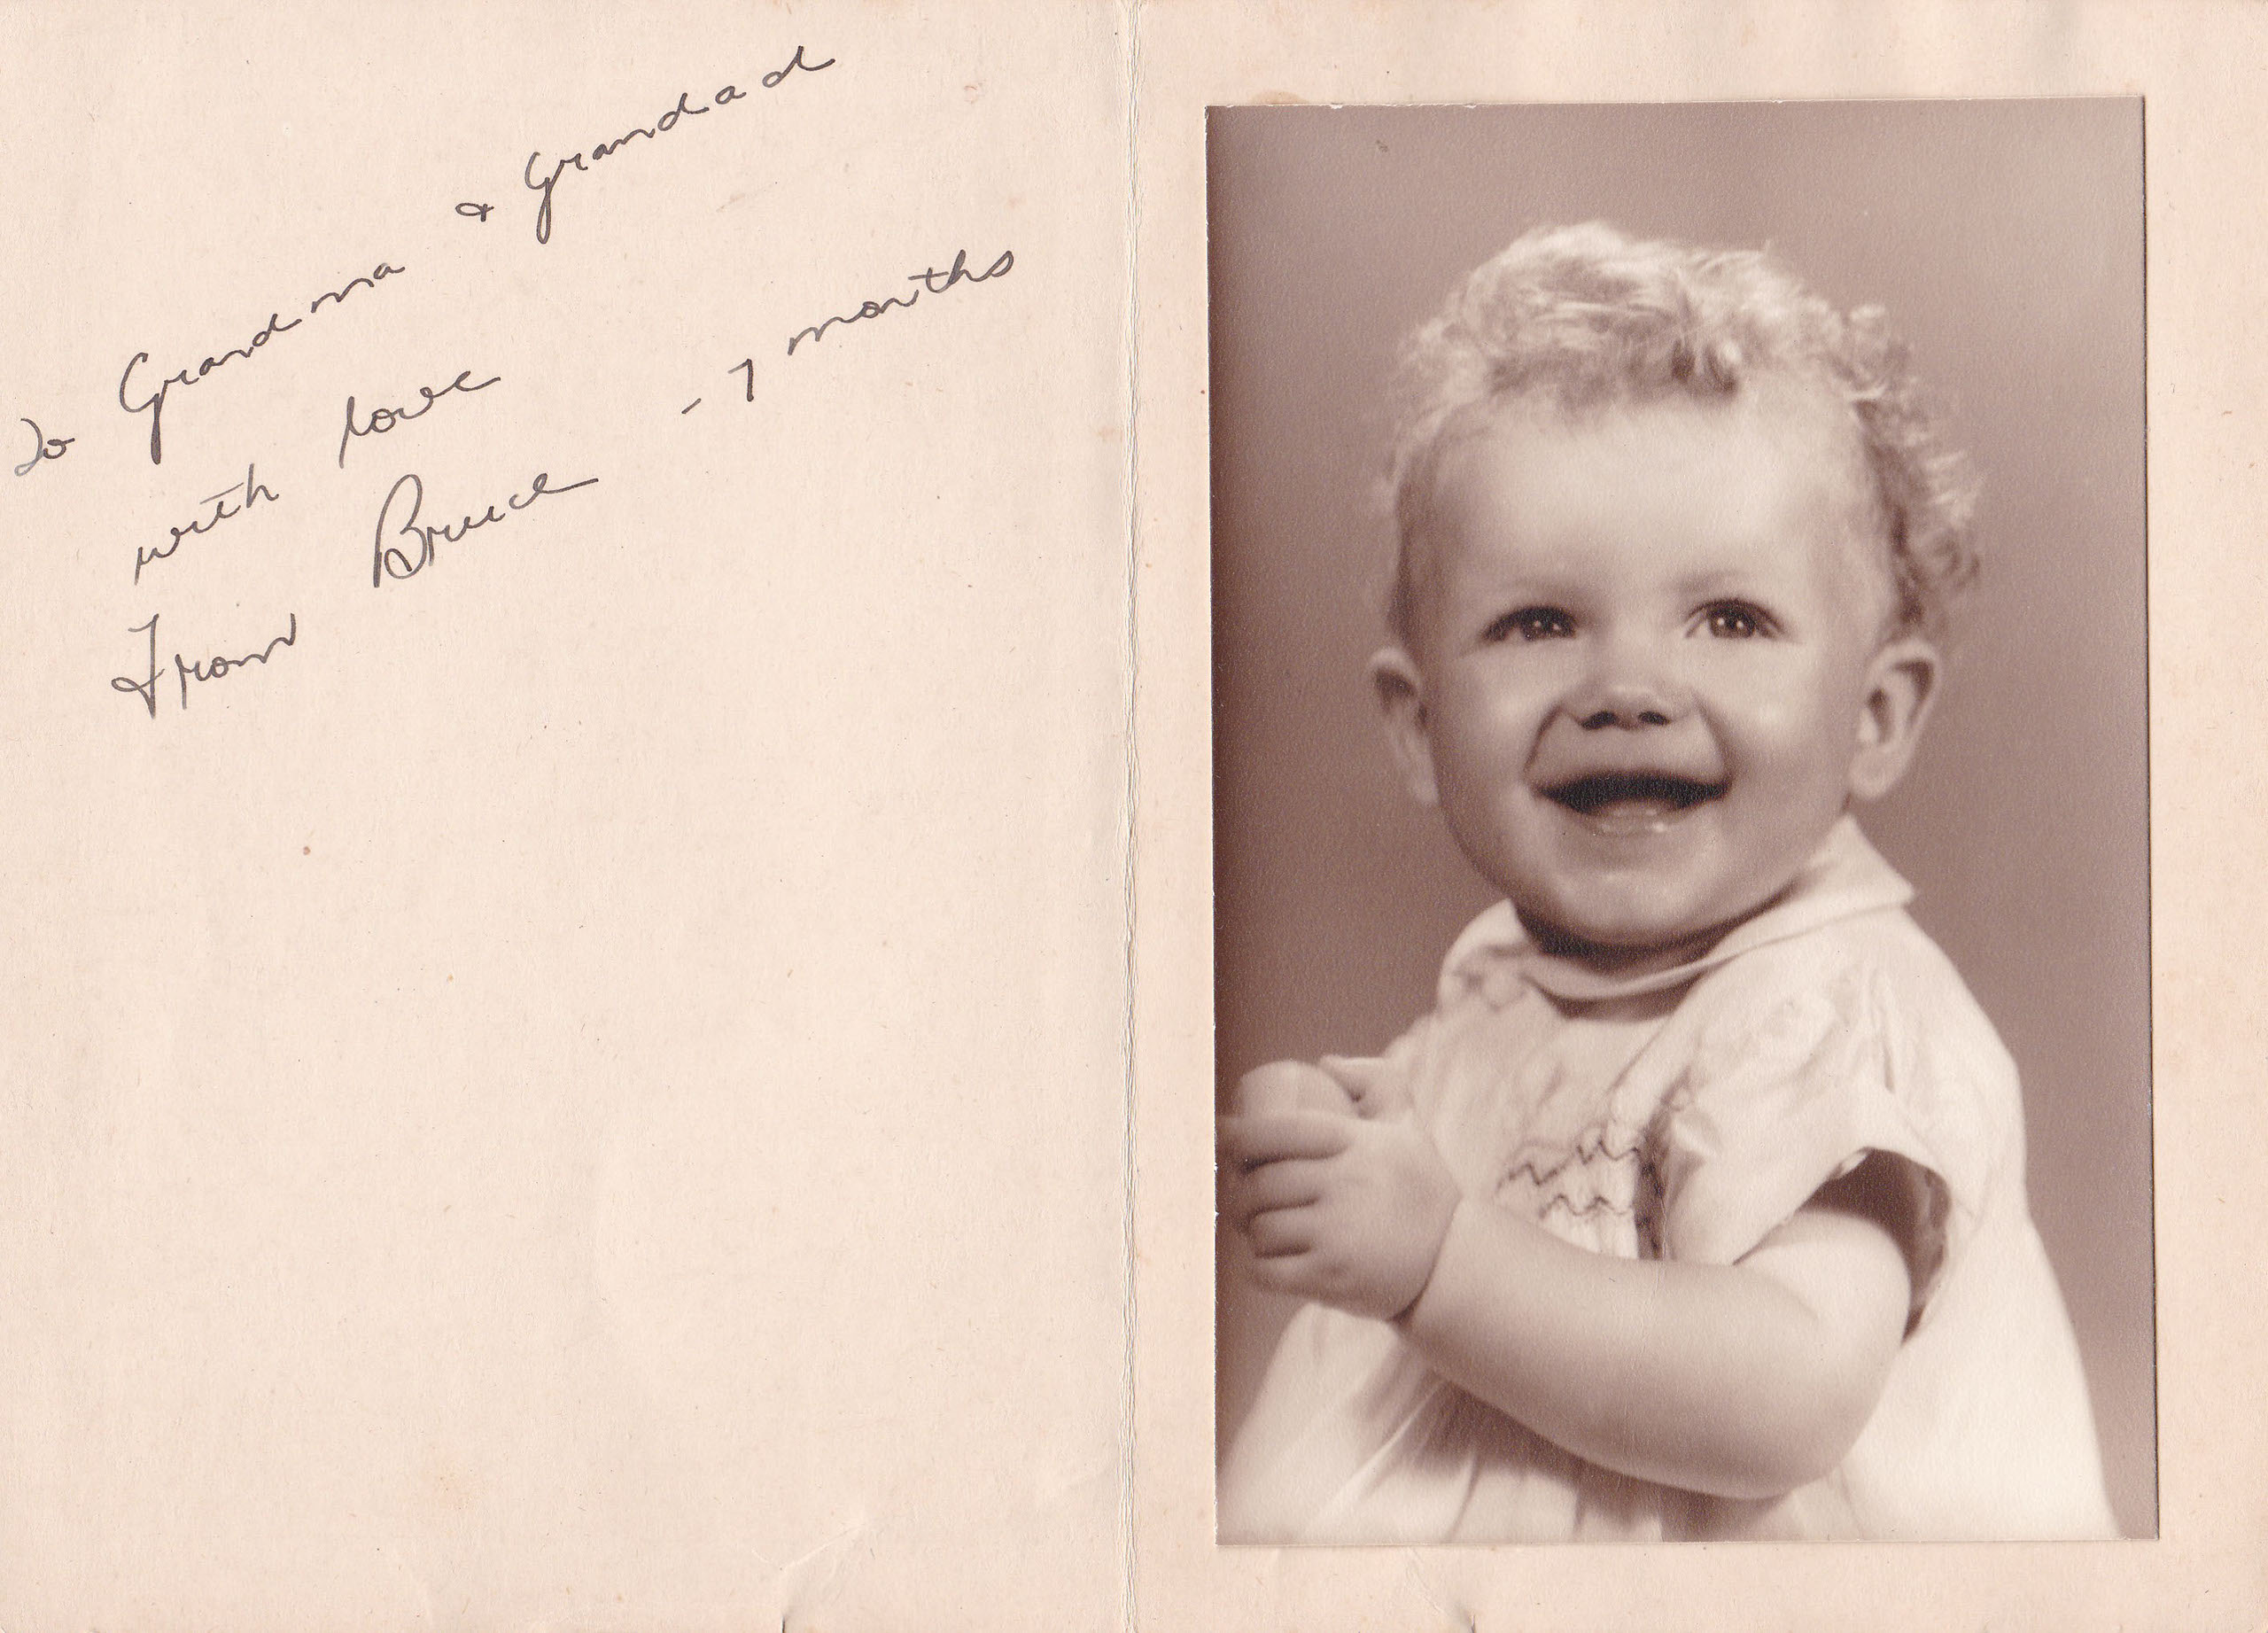 To Grandma & Grandad
with love
From Bruce - 7 months